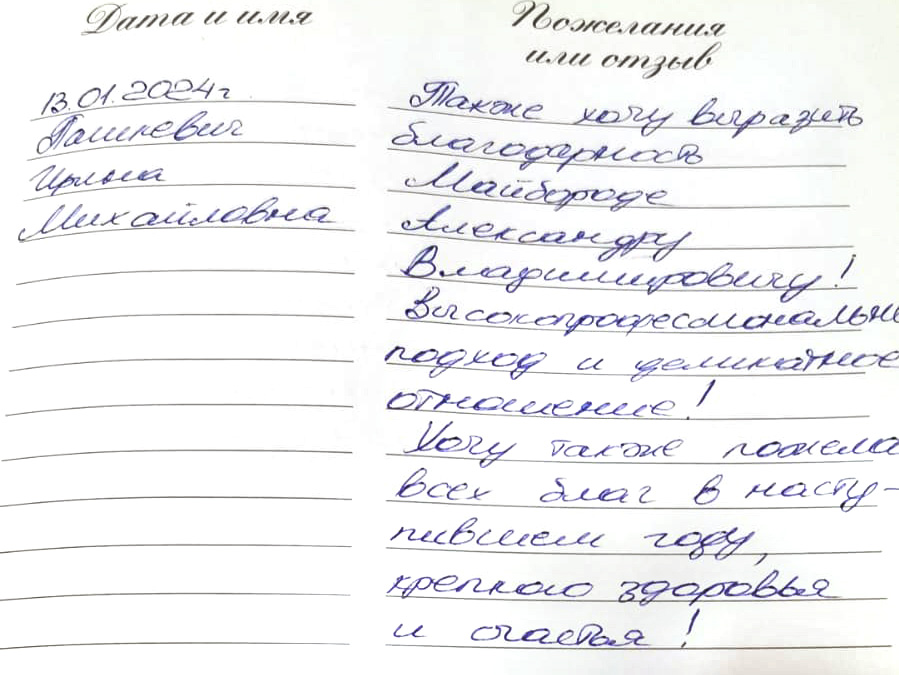 Дата и имя
13.01.2024г
Пашкевич
Ирина
Михайловна
Пожелания
или отзыв
Также хочу выразить
благодарность
Майбороде
Александру
Владимировичу!
Высокопрофессиональн
подход и деликатное
отношение!
Хочу также пожела
всех благ в насту-
пившем году,
крепкого здоровья
и счастья!